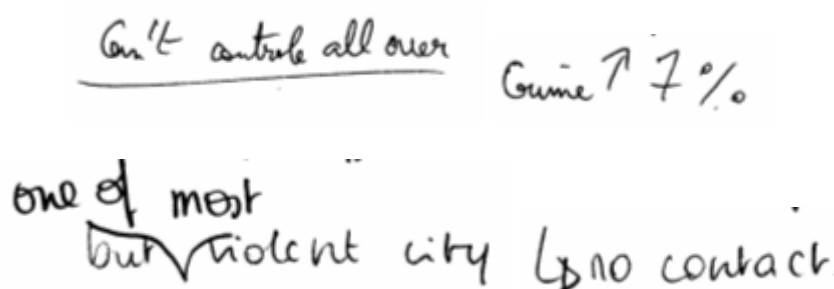 Can't controle all over
Crime ↑ 7 %
one of most
but violent city
↳ no contact.